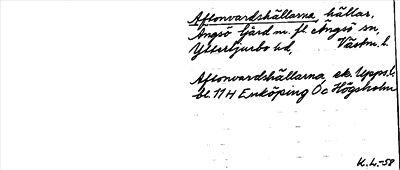 Aftonvardshällarna, hällar,
Ängsö Gård m. fl. Ängsö sn,
Yttertjurbo hd, Västm. l.
Aftonvardshällarna ek. Upps. l.
bl. 11 H Enköping Öc Högsholm
K.L.-58